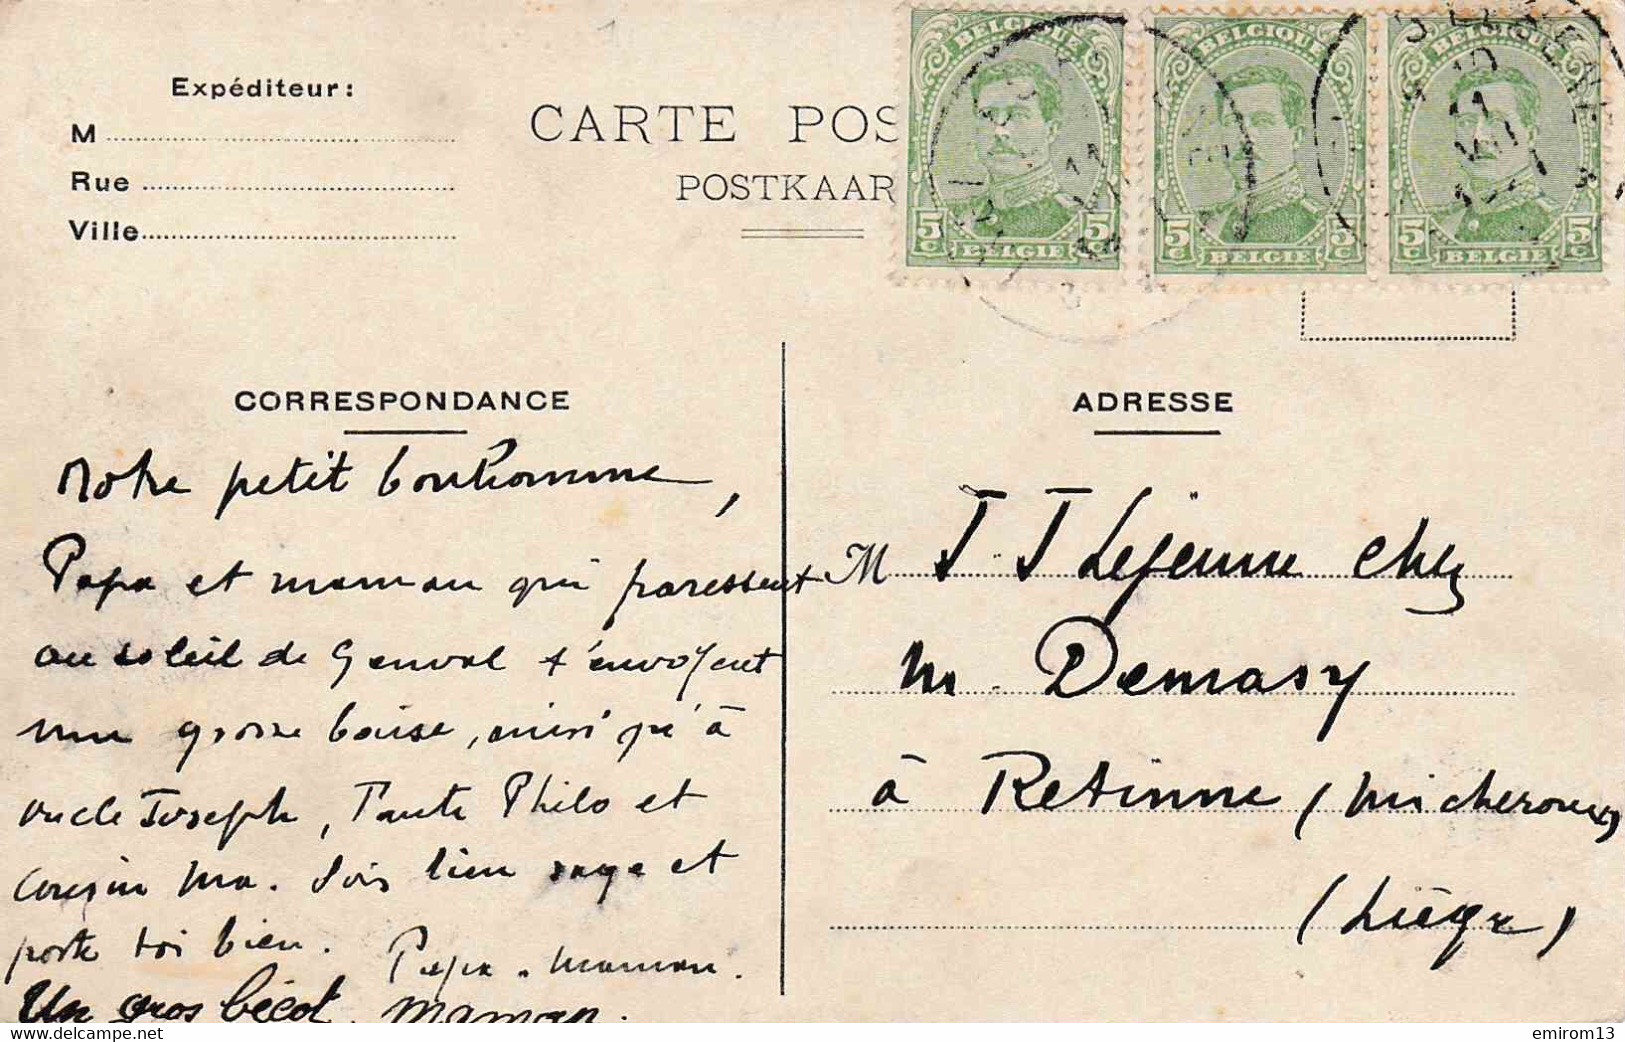 Expéditeur:
M
Rue
Ville
CARTE POS
POSTKAAR
BELGIQUE
5 c 5 c
BELGIE
BELGIQUE
5 c 5 c
BELGIE
BELGIQUE
5 c 5 c
BELGIE
CORRESPONDANCE
Notre petit bonhomme,
Papa et maman qui paressent
au soleil de Genval t'envoyent
une grosse baise, ainsi qu'à
oncle Joseph, Tante Philo et
cousin Ma. Sois bien sage et
porte toi bien. Papa. maman.
Un gros bécot. maman.
ADRESSE
M J J Lejeune chez
M. Demasy
à Retinne (Micheroux)
(Liège)
www.delcampe.net
emirom13